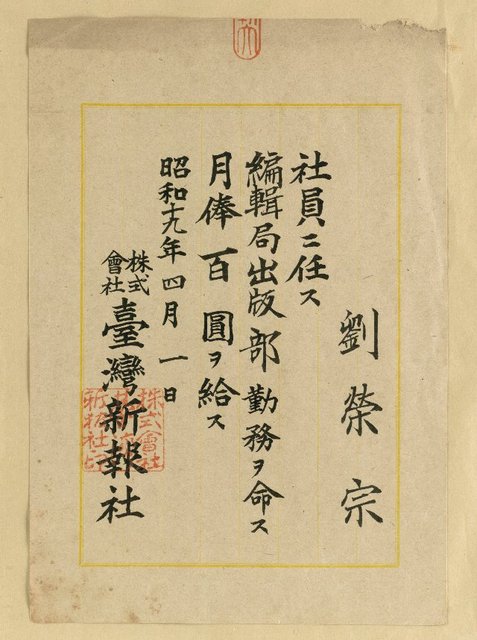 劉榮宗
社員ニ任ス
編輯局出版部勤務ヲ命ス
月俸百圓ヲ給ス
昭和十九年四月一日
株式會社臺灣新報社